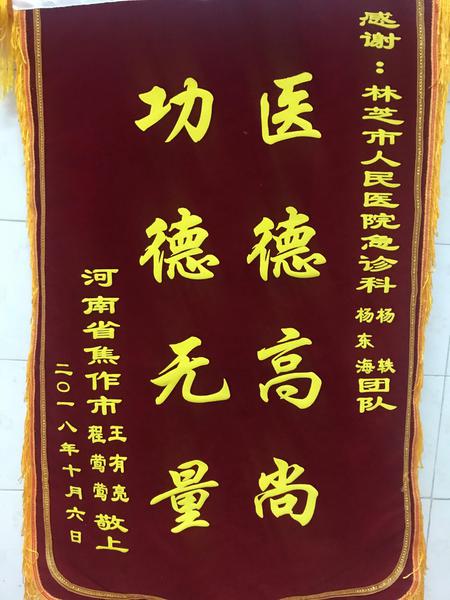 感谢：林芝市人民医院急诊科杨轶杨东海团队
医德高尚
功德无量
河南省焦作市王有亮程莺莺敬上
二〇一八年十月六日